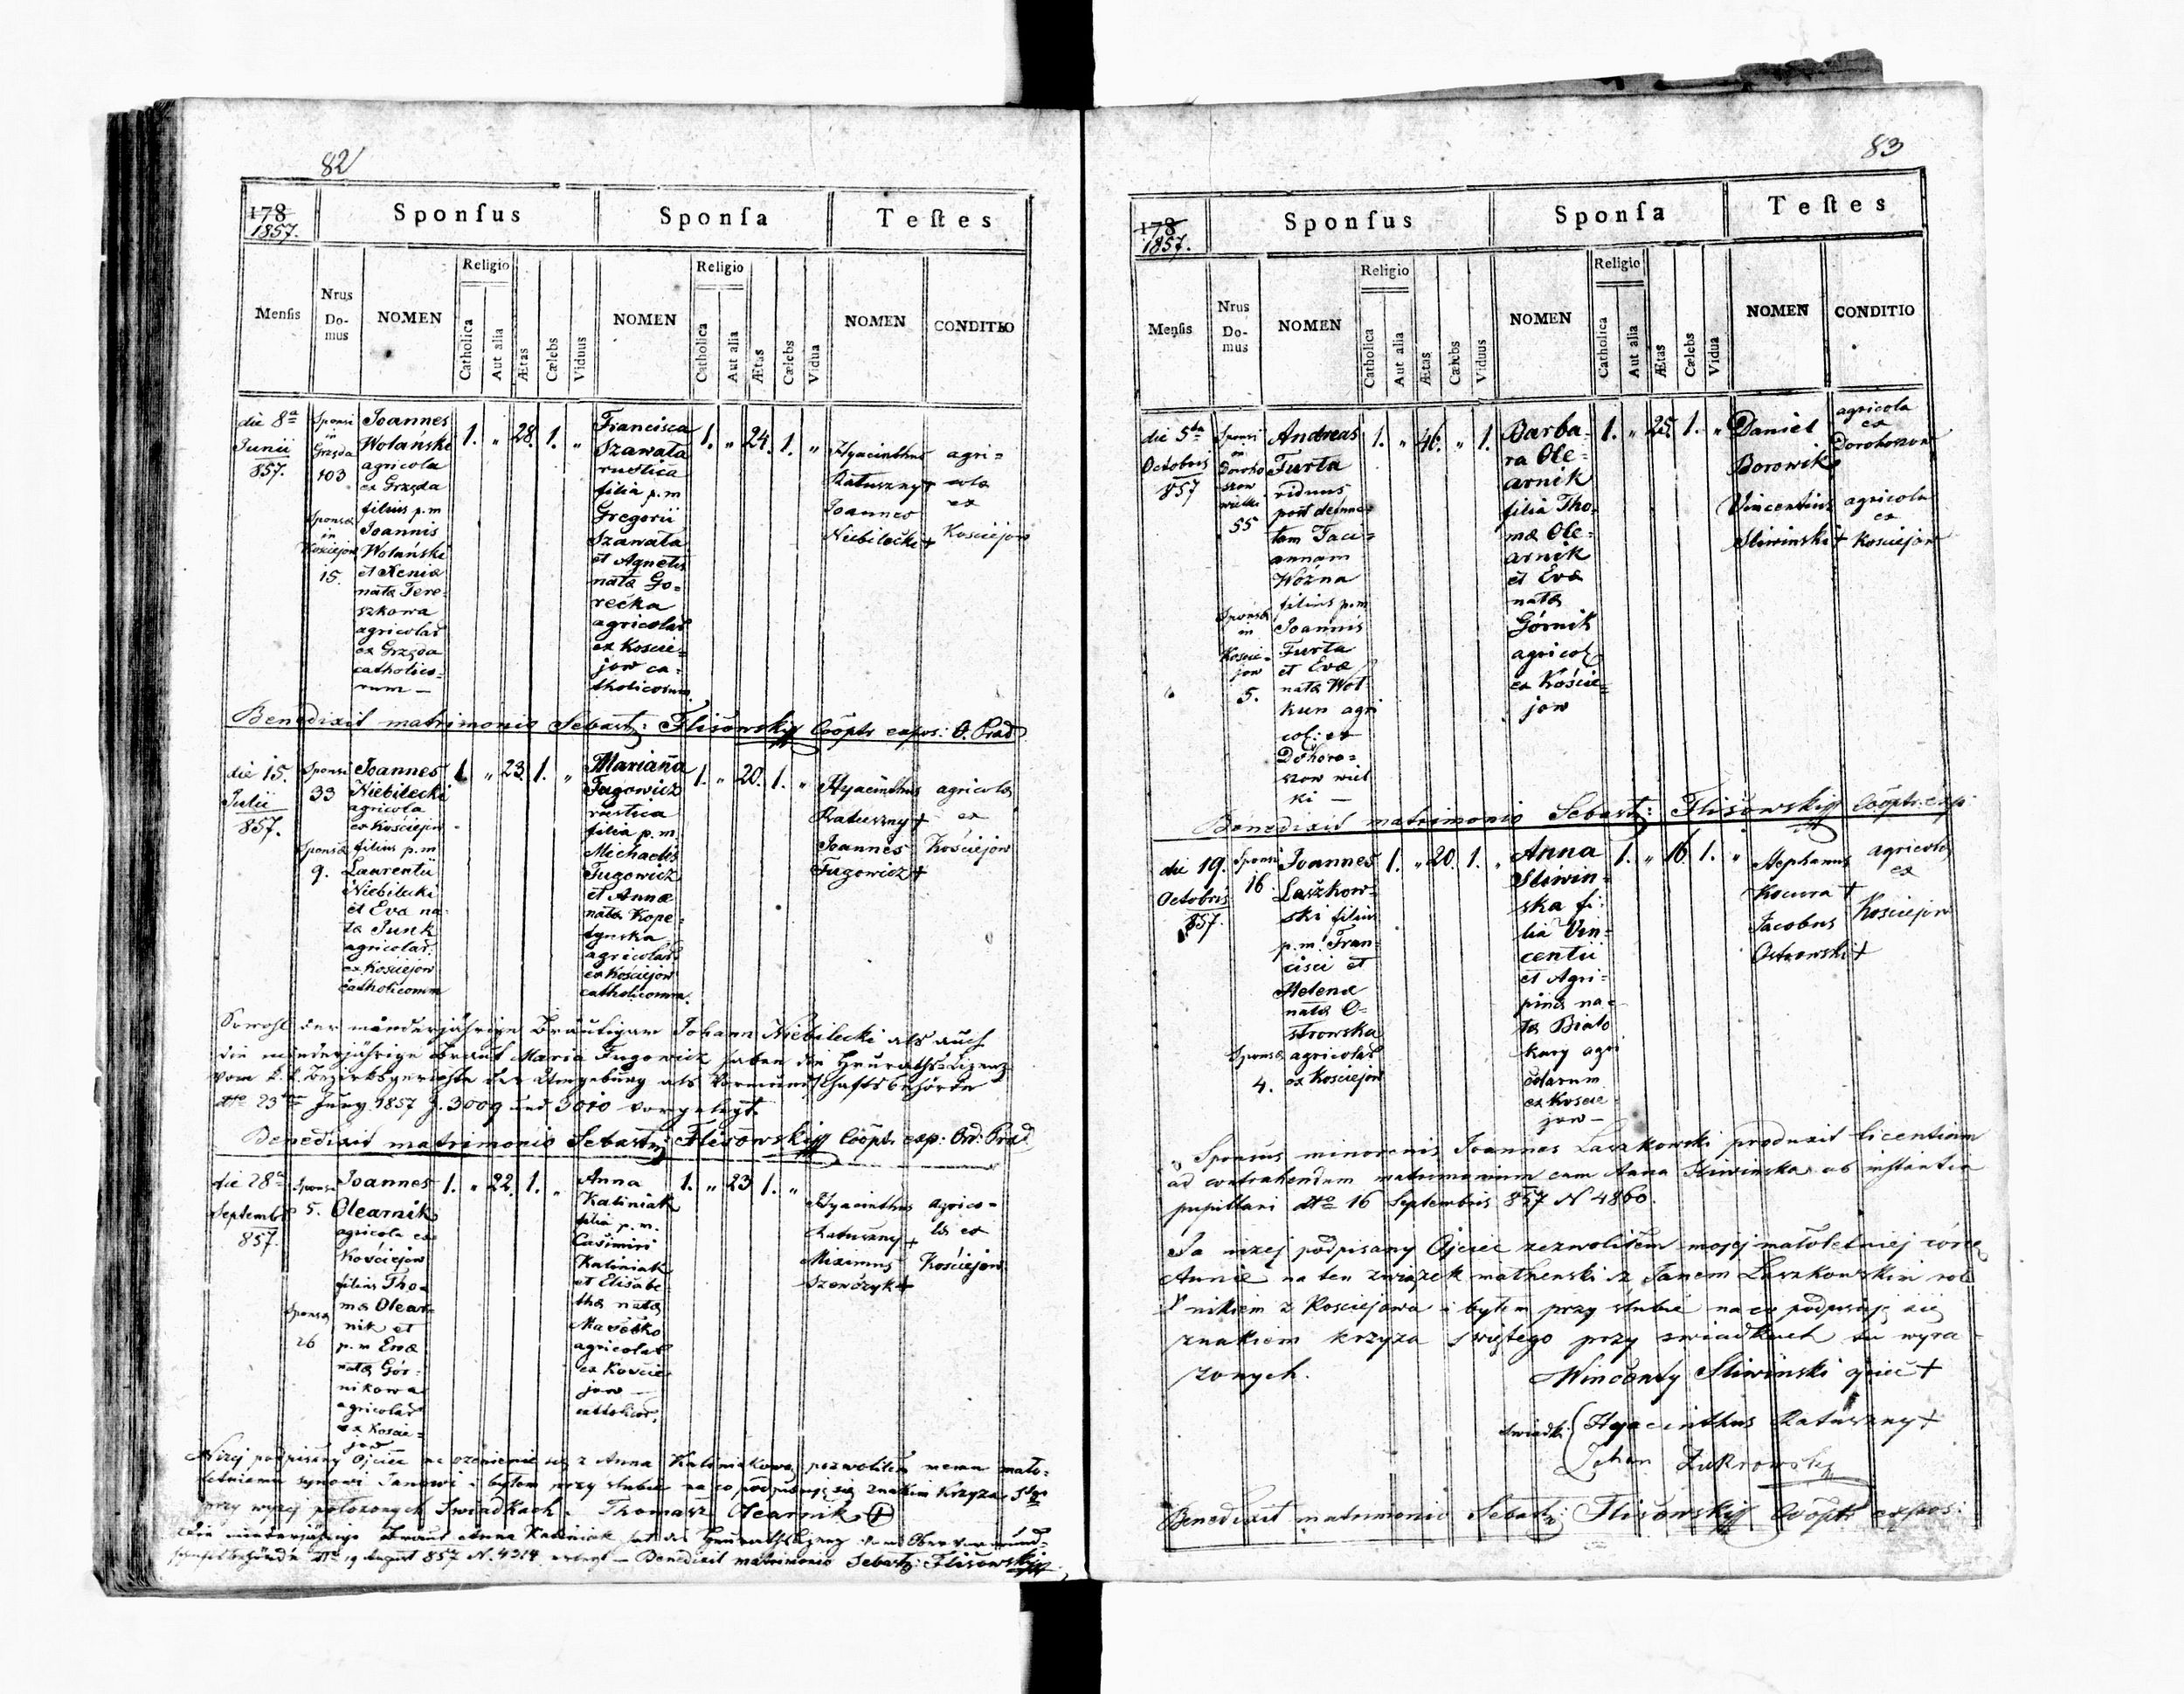 82
178
1857.
Sponſus
Sponſa
Teſtes
Menſis
Nrus
Do-
mus
NOMEN
Religio
Catholica
Aut alia
Ætas
Cælebs
Viduus
NOMEN
Religio
Catholica
Aut alia
Ætas
Cælebs
Vidua
NOMEN
CONDITIO
die 8ª
Junii
857.
Sponsi
in
Grzęda
103
Sponsæ
in
Kościejow
15.
Joannes
Wolański
agricola
ex Grzęda
filius p.m
Joannis
Wolański
et Xeniæ
natæ Tere-
szkowa
agricolar
ex Grzęda
catholico-
rum —
1. „ 28. 1. „
Francisca
Szawała
rustica
filia p.m
Gregorii
Szawała
et Agnetis
natæ Go-
recka
agricolar
ex Koscie-
jow ca-
tholicorum
1. „ 24. 1. „
Hyacinthus
Ratuszny +
Joannes
Niebilecki +
agri-
colæ
ex
Kosciejow
Benedixit matrimonio Sebast: Flisowski Coöpts expos: O. Præd
die 15.
Julii
857.
Sponsi
33
Sponsæ
9.
Joannes
Niebilecki
agricola
ex Kościejow
filius p.m
Laurentii
Niebilecki
et Eva na-
ta Junk
agricolar.
ex Kosciejow
catholicorum
1. „ 23. 1. „
Marianna
Fugowicz
rustica
filia p.m
Michaelis
Fugowicz
et Annæ
natæ Kope-
tynska
agricolar
ex Kościejow
catholicorum.
1. „ 20. 1. „
Hyacinthus
Ratuszny +
Joannes
Fugowicz +
agricolæ
ex
Kościejow
Sowohl der minderjährige Bräutigam Johann Niebilecki als auch
die minderjährige Braut Maria Fugowicz haben die Heuraths-Lizenz
vom k.k. Bezirksgerichte der Umgebung als Vormundschaftsbehörde
dtto 23ten Juny 1857 Z. 3009 und 3010 vorgelegt.
Benedixit matrimonio Sebast: Flisowski Coöpts exp: Ord: Præd
die 28ª
Septembr
857.
Sponsi
5.
Sponsæ
26
Joannes
Olearnik
agricola ex
Kościejow
filius Tho-
mæ Olear-
nik et
p.m Evæ
natæ Gór-
nikowa
agricolar
ex Koscie-
jow
1. „ 22. 1. „
Anna
Kaliniak
filia p.m.
Casimiri
Kaliniak
et Elisabe
thæ natæ
Maćsko
agricolar
ex Koscie
jow —
catholicor,
1. „ 23 1. „
Hyacinthus
Ratuszny +
Maximus
Szewczyk +
agrico-
læ ex
Kościejow
Niżej podpisany Ojciec na ożenienie się z Anną Kaliniakową pozwoliłem memu mało-
letniemu synowi Janowi i byłem przy ślubie na co podpisuję się znakim krzyża Sgo
przy wyżej położonych Swiadkach. Thomasz Olearnik +
Die minderjährige Braut Anna Kaliniak hat die Heurathslizenz von Obervormund-
schaftsbehörde dto 19 August 857 N. 4314 erlegt — Benedixit matrimonio Sebast: Flisowski
83
178
1857.
Sponſus
Sponſa
Teſtes
Menſis
Nrus
Do-
mus
NOMEN
Religio
Catholica
Aut alia
Ætas
Cælebs
Viduus
NOMEN
Religio
Catholica
Aut alia
Ætas
Cælebs
Vidua
NOMEN
CONDITIO
die 5ta
Octobris
857
Sponsi
in
Doroho
szow
wielki
55
Sponsæ
in
Koscie-
jow
5.
Andreas
Furta
viduus
post defunc-
tam Taci-
annam
Wożna
filius p.m
Joannis
Furta
et Evæ
natæ Woł-
kun agri
col: ex
Dohoro-
szow wiel
ki —
1. „ 46. „ 1.
Barba-
ra Ole-
arnik
filia Tho-
mæ Ole-
arnik
et Evæ
natæ
Górnik
agricol
ex Koście-
jow
1. „ 25. 1. „
Daniel
Borowik
Vincentius
Sliwinski +
agricola
ex
Dorohoszow
agricola
ex
Kosciejow
Benedixit matrimonio Sebast: Flisowski Coöpts: exp:
die 19.
Octobris
857.
Sponsi
16
Sponsæ
4.
Joannes
Laszkow-
ski filius
p.m. Fran-
cisci et
Helenæ
natæ O-
strowska
agricolar
ex Kosciejow
1. „ 20. 1. „
Anna
Sliwin-
ska fi-
lia Vin-
centii
et Agri-
pinæ na-
tæ Biało
kury agri
colarum
ex Koscie
jow —
1. „ 16. 1. „
Stephanus
Kocura +
Jacobus
Ostrowski +
agricolæ
ex
Kosciejow
Sponsus minorenis Joannes Laszkowski produxit licentiam
ad contrahendum matrimonium cum Anna Sliwinska ab instantia
pupillari dtto 16 Septembris 857 N 4860.
Ja niżej podpisany Ojciec zezwoliłem mojej małoletniej córce
Annie na ten związek małżenski z Janem Laszkowskim rol
nikiem z Kosciejowa i byłem przy ślubie na co podpisuję się
znakiem krzyża świętego przy swiadkach tu wyra-
żonych.
Wincenty Sliwinski ojciec +
swiadki Hyacinthus Ratuszny +
Johan Zukrowski
Benedixit matrimonio Sebast: Flisowski Coöpts expos: